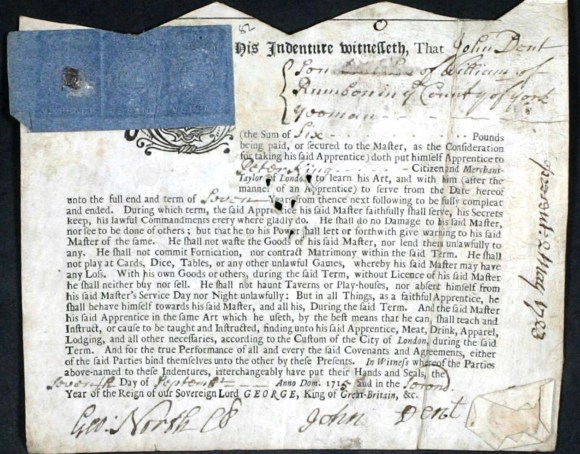 82
His Indenture witnesseth, That John Dent
Son of William of
in ye County of York
Yeoman
(the Sum of Six Pounds
being paid, or secured to the Master, as the Consideration
for taking his said Apprentice) doth put himself Apprentice to
Peter King Citizen and Merchant-
Taylor of London, to learn his Art, and with him (after the
manner of an Apprentice) to serve from the Date hereof
unto the full end and term of Seven from thence next following to be fully compleat
and ended. During which term, the said Apprentice his said Master faithfully shall serve, his Secrets
keep, his lawful Commandments every where gladly do. He shall do no Damage to his said Master,
nor see to be done of others; but that he to his Power shall let or forthwith give warning to his said
Master of the same. He shall not waste the Goods of his said Master, nor lend them unlawfully to
any. He shall not commit Fornication, nor contract Matrimony within the said Term. He shall
not play at Cards, Dice, Tables, or any other unlawful Games, whereby his said Master may have
any Loss. With his own Goods or others, during the said Term, without Licence of his said Master
he shall neither buy nor sell. He shall not haunt Taverns or Play-houses, nor absent himself from
his said Master's Service Day nor Night unlawfully: But in all Things, as a faithful Apprentice, he
shall behave himself towards his said Master, and all his, During the said Term. And the said Master
his said Apprentice in the same Art which he useth, by the best means that he can, shall teach and
Instruct, or cause to be taught and Instructed, finding unto his said Apprentice, Meat, Drink, Apparel,
Lodging, and all other necessaries, according to the Custom of the City of London, during the said
Term. And for the true Performance of all and every the said Covenants and Agreements, either
of the said Parties bind themselves unto the other by these Presents. In Witness whereof the Parties
above-named to these Indentures, interchangeably have put their Hands and Seals, the
Seventh Day of September Anno Dom. 1715 and in the Second
Year of the Reign of our Sovereign Lord GEORGE, King of Great-Britain, &c.
Geo: North John Dent
present 2 May 1723